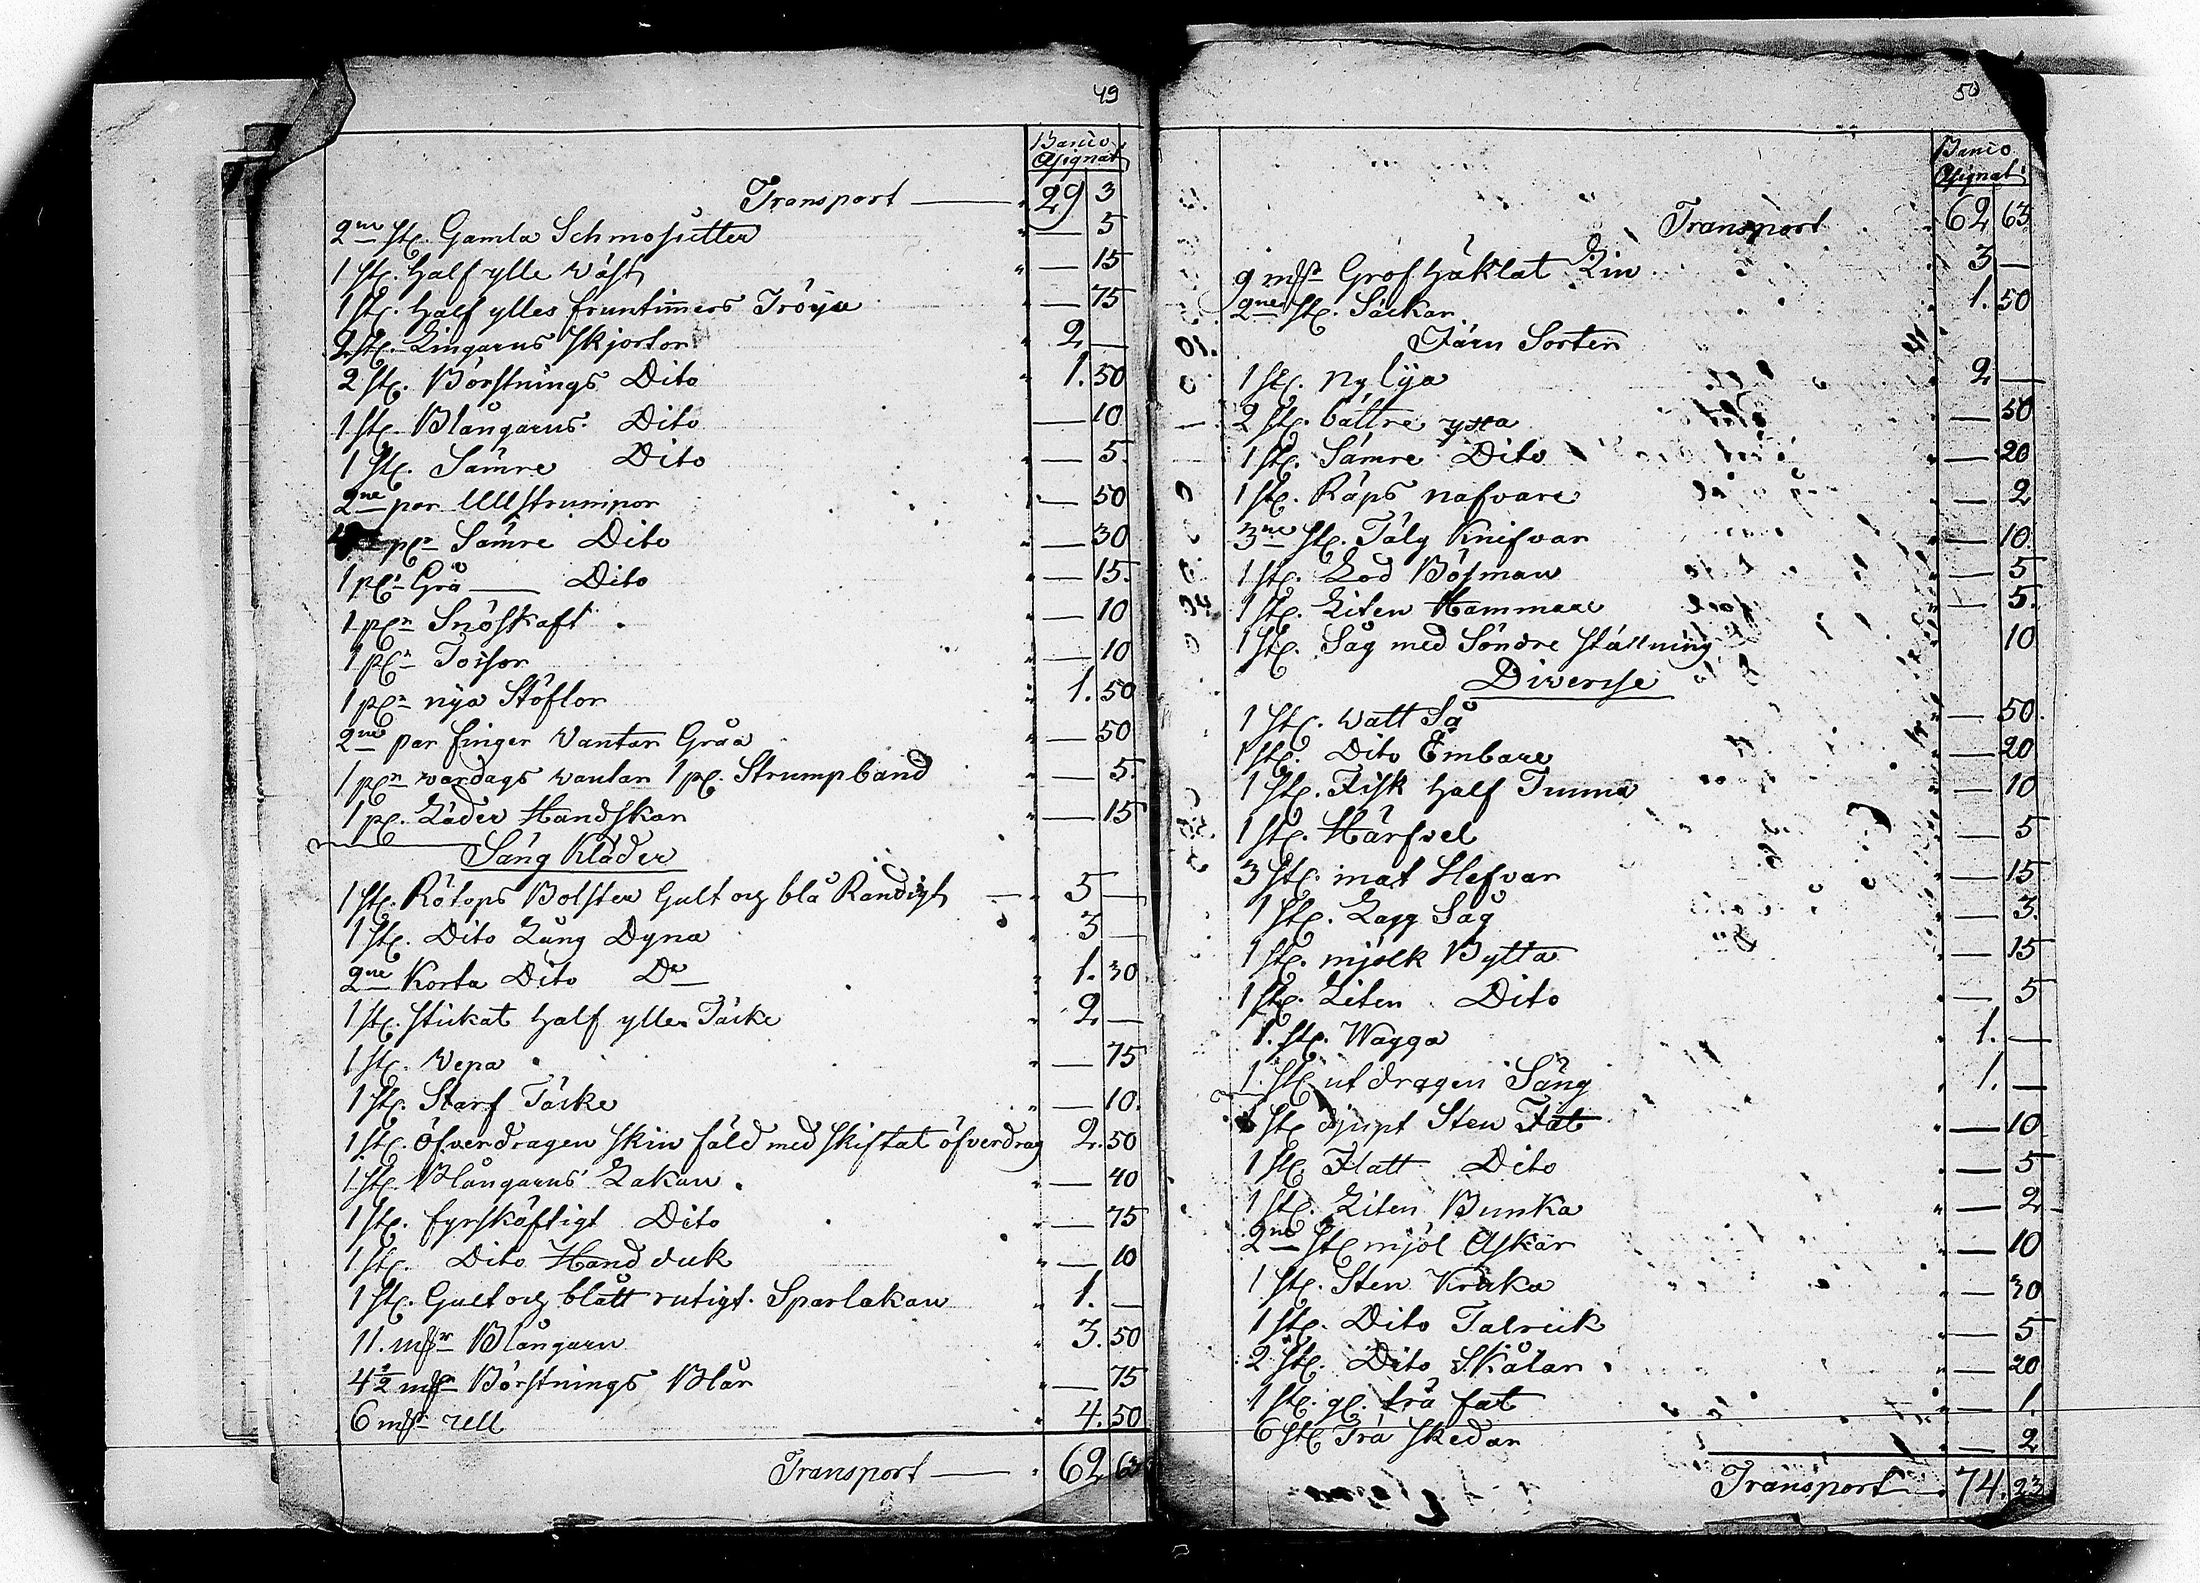 49
Banco
Assignat
Transport — 29 3
2ne st. Gamla Schmosetter — 5
1 st. half ylle väst — 15
1 st. half ylles fruntimmers Tröÿa — 75
2 st. Lingarns skjortor 2 —
2 st. Börstnings Dito 1. 50
1 st. Blångarns Dito — 10
1 st. Sämre Dito — 5
2ne par Ullstrumpor — 50
pr Sämre Dito — 30
1 pr Grå — Dito — 15.
1 pr Snöskaft — 10
1 pr Tossor — 10
1 pr nÿa Stöflor 1. 50
2ne par finger Vantar Gråa — 50
1 pr vardags vantar 1 p. Strumpband — 5
1 p. Läder Handskar — 15
Säng Kläder
1 st. Rötops Bolster Gult och blå Randigt — 5 —
1 st. Dito Lång Dyna 3 —
2ne Korta Dito Do 1. 30
1 st. stickat half ylles Täcke 2 —
1 st. Vepa — 75
1 st. Starf Täcke — 10.
1 st. Öfverdragen skin fäld med skiftat öfverdrag 2. 50
1 st. Blångarns Lakan — 40
1 st. fyrskäftigt Dito — 75
1 st. Dito Handduk — 10
1 st. Gult och blått rutigt Sparlakan 1. —
11. mkr Blångarn 3. 50
4½ mkr Börstnings Blår — 75
6 mkr ull 4. 50
Transport — 62 63
50
Banco
Assignat
Transport 62 63
9 mkr Grof häklat Lin 3 —
2ne st. Säckar 1. 50
Järn Sorten
1 st. ny lÿa 2 —
2 st. bättre yxa — 50
1 st. Sämre Dito — 20
1 st. Räps nafvare — 2
3ne st. Tälg Knifvar — 10.
1 st. Lod Bösman — 5
1 st. Liten Hammare — 5.
1 st. Såg med Söndre ställning 10
Diverse
1 st. Watt Så — 50.
1 st. Dito Embare — 20
1 st. Fisk half Tunna — 10
1 st. Härfvel — 5
3 st. mat Hefvar — 15
1 st. Lagg Såg — 3.
1 st. mjölk Bytta — 15
1 st. Liten Dito — 5
1. st. Wagga 1. —
1. st. utdragen Säng 1. —
1 st. djupt Sten Fat — 10
1 st. Flatt Dito — 5
1 st. Liten Bunka — 2
2ne st. mjöl Askar — 10
1 st. Sten Kruka — 30
1 st. Dito Talrick — 5
2 st. Dito Skålar — 20
1 st. gl. trä fat — 1.
6 st. Trä Skedar — 2
Transport 74. 23